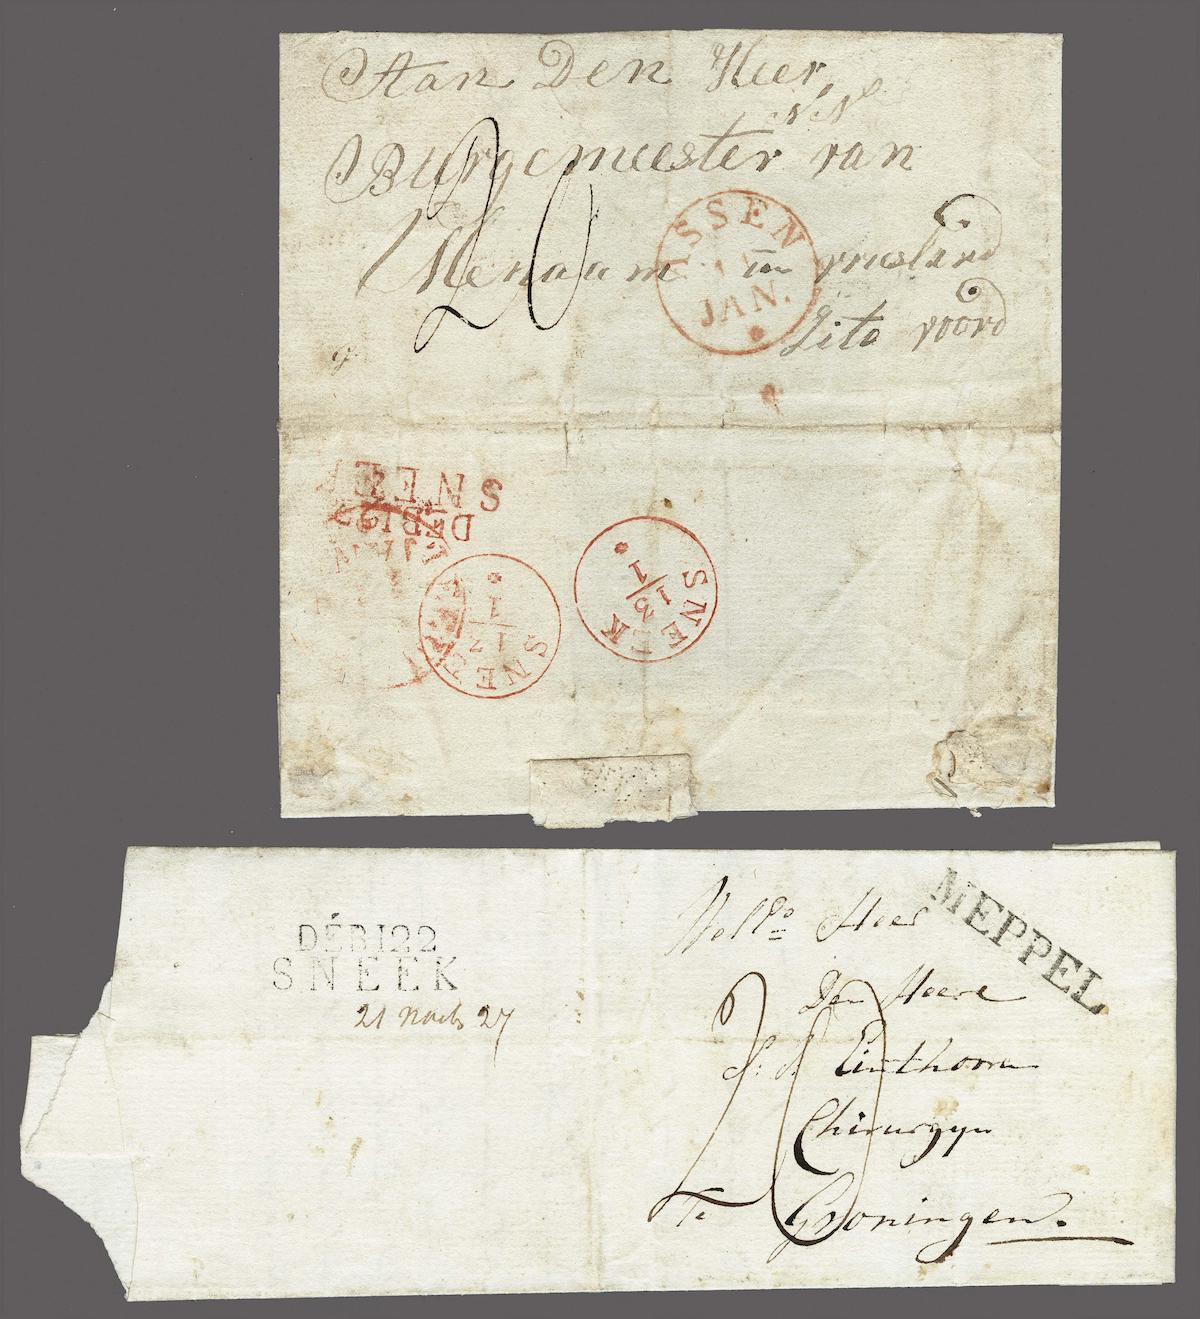 Aan Den Heer
N N
Burgemeester van
Menaam in vriesland
Lito voord
20
ASSEN
11
JAN.
SNEEK
DEB122
SNEEK
17
1
SNEEK
13
1
DÉB122
SNEEK
21 Novb 27
MEPPEL
Heer
Den Heere
Einthoven
Chirurgyn
Te Groningen.
20